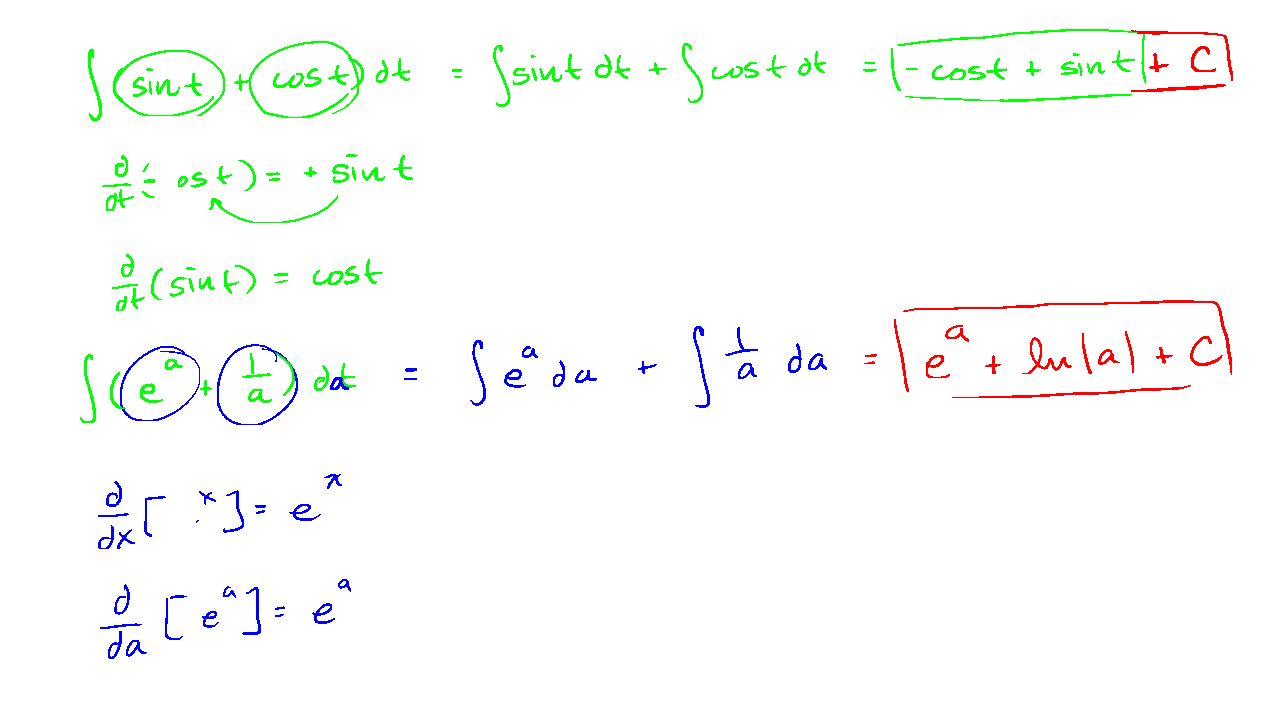 ∫(sin t + cos t) dt = ∫sin t dt + ∫cos t dt = - cos t + sin t + C
d/dt (- os t) = + sin t
d/dt (sin t) = cos t
∫(e^a + 1/a) da = ∫e^a da + ∫1/a da = e^a + ln|a| + C
d/dx [ x] = e^x
d/da [e^a] = e^a